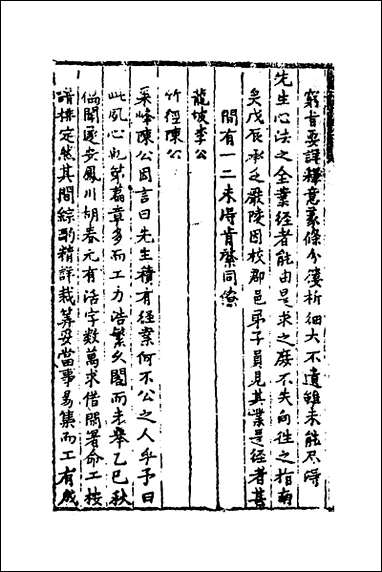 窮旨要譯釋意義條分縷析細大不遺雖未能盡得
先生心法之全業经者能由是求之庶不失向徃之指南
矣戊辰承乏嚴陵因校郡邑弟子員見其業是经者甚
間有一二未得肯綮同僚
龍坡李公
竹徑陳公
采峰陳公因言曰先生積有经業何不公之人乎予曰
此夙心也第篇章多而工力浩繁久閣而未舉乙巳秋
偶聞遂安鳳川胡春元有活字數萬求借開署命工按
譜排定然其間綜酌精詳裁筭妥當事易集而工有成